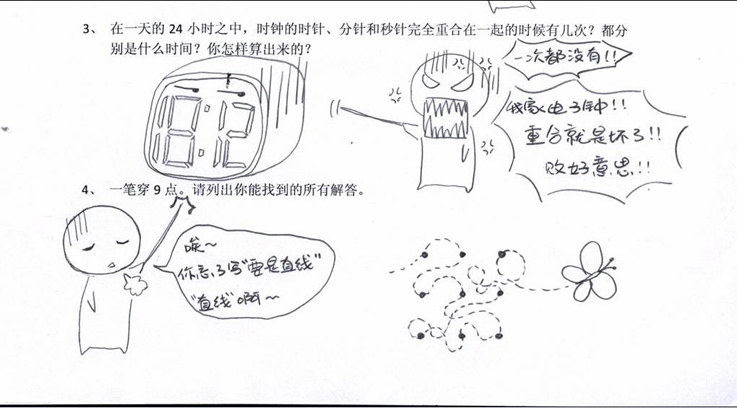 3、 在一天的 24 小时之中，时钟的时针、分针和秒针完全重合在一起的时候有几次？都分
别是什么时间？你怎样算出来的？
一次都没有!!
我家电子钟!!
重合就是坏了!!
败好意思!!
4、 一笔穿 9 点。请列出你能找到的所有解答。
唉～
你忘了写“要是直线”
“直线”啊～